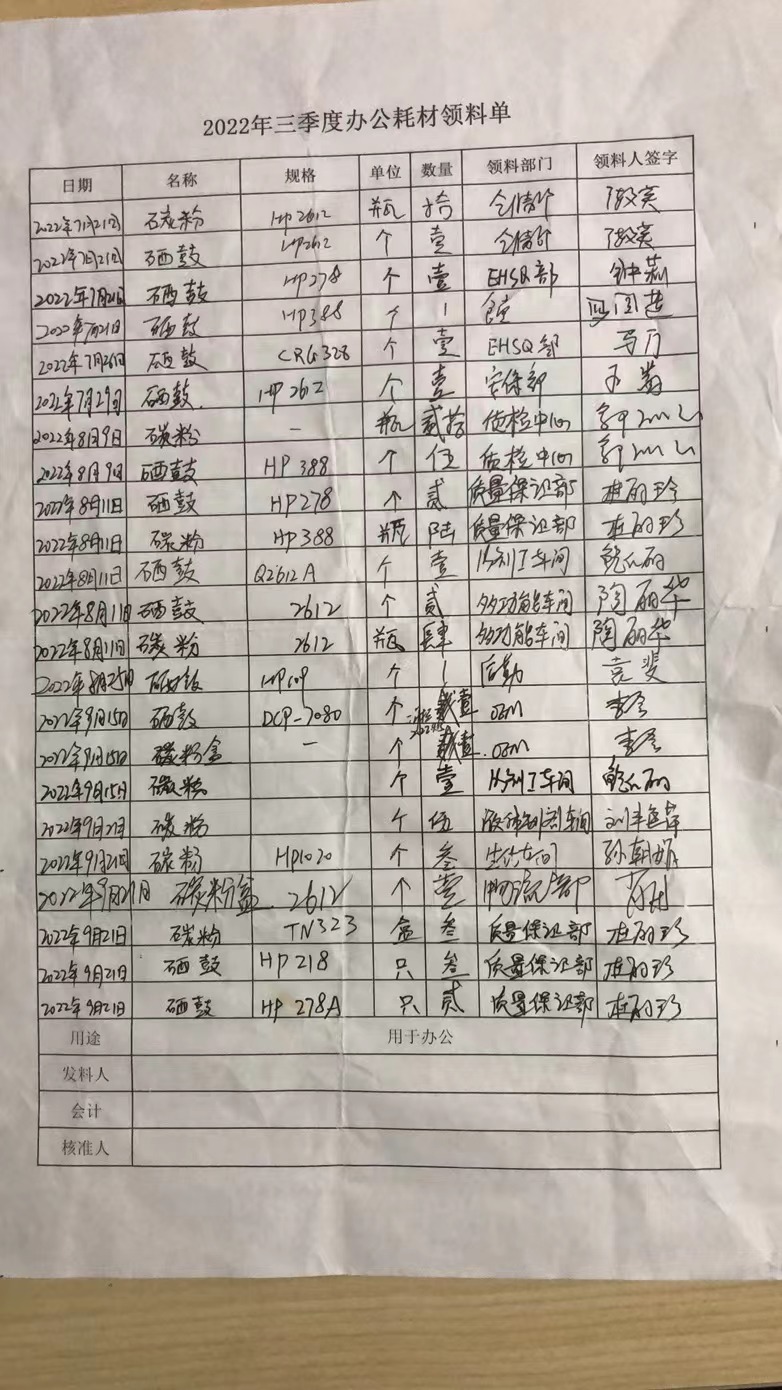 2022年三季度办公耗材领料单
日期 名称 规格 单位 数量 领料部门 领料人签字
2022年7月21日 碳粉 HP2612 瓶 拾
2022年7月21日 硒鼓 HP2612 个 壹
2022年7月21日 硒鼓 HP278 个 壹 EHSQ部 钟莉
2022年7月21日 硒鼓 HP388 个 1
2022年7月26日 硒鼓 CRG328 个 壹 EHSQ部
2022年7月29日 硒鼓 HP2612 个 壹 安保部
2022年8月9日 碳粉 — 瓶 贰拾 质检中心
2022年8月9日 硒鼓 HP 388 个 伍 质检中心
2022年8月11日 硒鼓 HP278 个 贰 质量保证部 桂丽珍
2022年8月11日 碳粉 HP388 瓶 陆 质量保证部 桂丽珍
2022年8月11日 硒鼓 Q2612A 个 壹 车间
2022年8月11日 硒鼓 2612 个 贰 多功能车间 陶丽华
2022年8月11日 碳粉 2612 瓶 肆 多功能车间 陶丽华
2022年8月25日 硒鼓 个 1 后勤 袁斐
2022年9月15日 硒鼓 DCP-7080 个 壹 OEM
2022年9月15日 碳粉盒 — 个 壹 OEM
2022年9月15日 碳粉 个 壹 车间
2022年9月21日 碳粉 个 伍 液体制剂车间
2022年9月21日 碳粉 HP1020 个 叁
2022年9月21日 碳粉盒 2612 个 壹 物流部
2022年9月21日 碳粉 TN323 盒 叁 质量保证部 桂丽珍
2022年9月21日 硒鼓 HP 218 只 叁 质量保证部 桂丽珍
2022年9月21日 硒鼓 HP 278A 只 贰 质量保证部 桂丽珍
用途 用于办公
发料人
会计
核准人